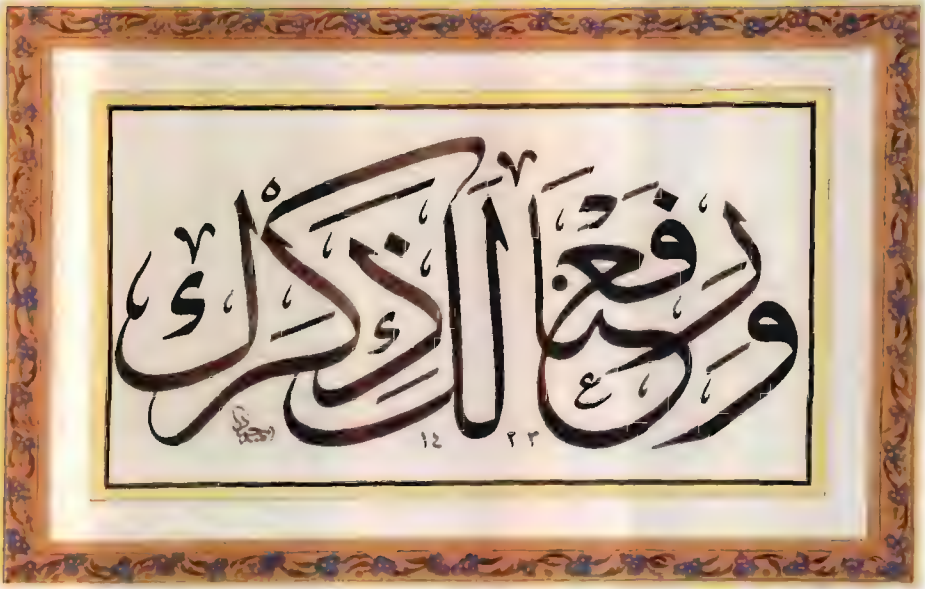 وَرَفَعْنَا لَكَ ذِكْرَكَ
١٤٢٣